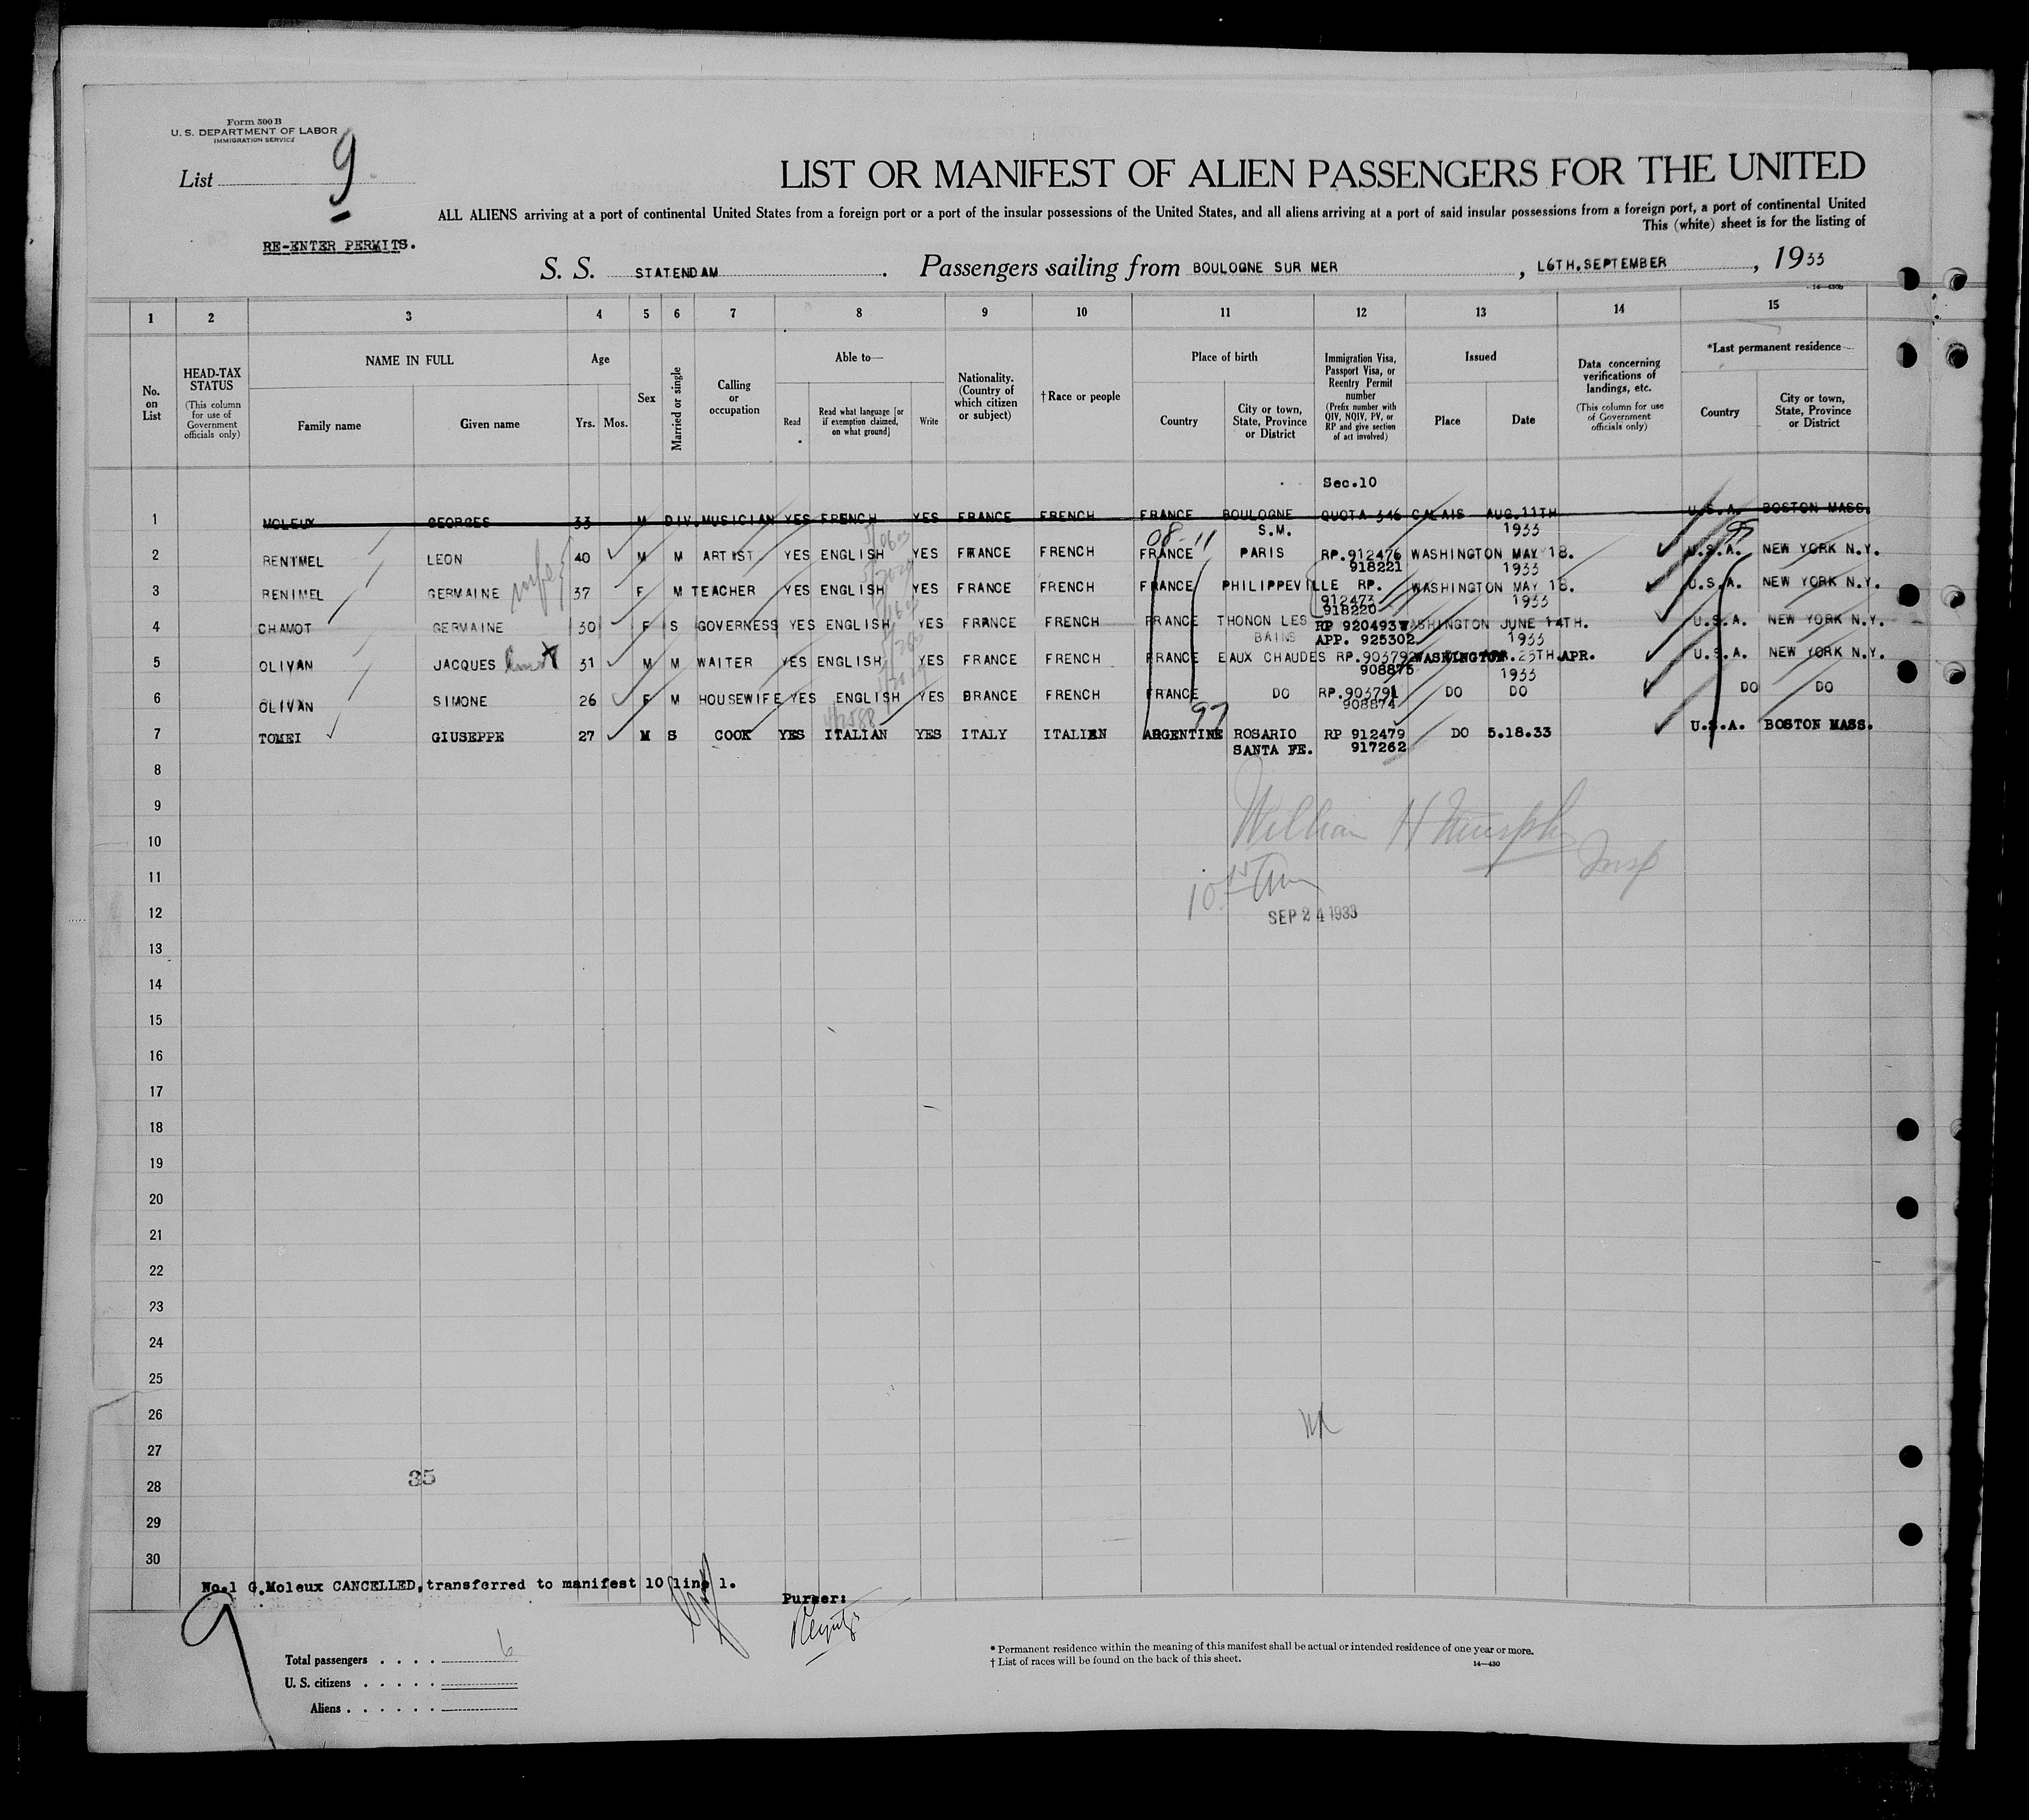 Form 500 B
U. S. DEPARTMENT OF LABOR
IMMIGRATION SERVICE
List 9
LIST OR MANIFEST OF ALIEN PASSENGERS FOR THE UNITED
ALL ALIENS arriving at a port of continental United States from a foreign port or a port of the insular possessions of the United States, and all aliens arriving at a port of said insular possessions from a foreign port, a port of continental United
This (white) sheet is for the listing of
RE-ENTER PERMITS.
S. S. STATENDAM . Passengers sailing from BOULOGNE SUR MER , L6TH.SEPTEMBER , 1933
1 2 3 4 5 6 7 8 9 10 11 12 13 14 15
No. on List
HEAD-TAX STATUS (This column for use of Government officials only)
NAME IN FULL
Family name
Given name
Age
Yrs. Mos.
Sex
Married or single
Calling or occupation
Able to—
Read
Read what language [or if exemption claimed, on what ground]
Write
Nationality. (Country of which citizen or subject)
† Race or people
Place of birth
Country
City or town, State, Province or District
Immigration Visa, Passport Visa, or Reentry Permit number (Prefix number with QIV, NQIV, PV, or RP and give section of act involved)
Issued
Place
Date
Data concerning verifications of landings, etc. (This column for use of Government officials only)
*Last permanent residence
Country
City or town, State, Province or District
Sec.10
1 MOLEUX GEORGES 33 M DIV. MUSICIAN YES FRENCH YES FRANCE FRENCH FRANCE BOULOGNE QUOTA 346 CALAIS AUG.11TH U.S.A. BOSTON MASS.
S.M. 1933
08-11 99
2 RENIMEL LEON 40 M M ARTIST YES ENGLISH YES FRANCE FRENCH FRANCE PARIS RP.912476 WASHINGTON MAY 18. U.S.A. NEW YORK N.Y.
918221 1933
3 RENIMEL GERMAINE wife 37 F M TEACHER YES ENGLISH YES FRANCE FRENCH FRANCE PHILIPPEVILLE RP. WASHINGTON MAY 18. U.S.A. NEW YORK N.Y.
912473 1933
918220
4 CHAMOT GERMAINE 30 F S GOVERNESS YES ENGLISH YES FRANCE FRENCH FRANCE THONON LES RP 920493 WASHINGTON JUNE 14TH. U.S.A. NEW YORK N.Y.
BAINS APP. 925302 1933
5 OLIVAN JACQUES 31 M M WAITER YES ENGLISH YES FRANCE FRENCH FRANCE EAUX CHAUDES RP.903792 WASHINGTON. 25TH.APR. U.S.A. NEW YORK N.Y.
908875 1933
6 OLIVAN SIMONE 26 F M HOUSEWIFE YES ENGLISH YES FRANCE FRENCH FRANCE DO RP.903791 DO DO DO DO
908874
97
7 TOMEI GIUSEPPE 27 M S COOK YES ITALIAN YES ITALY ITALIAN ARGENTINE ROSARIO RP 912479 DO 5.18.33 U.S.A. BOSTON MASS.
SANTA FE. 917262
8
9
William H Murphy
10
Insp
11
12
SEP 24 1933
13
14
15
16
17
18
19
20
21
22
23
24
25
26
27
28
35
29
30
No.1 G.Moleux CANCELLED,transferred to manifest 10 line 1.
Purser:
9
Total passengers . . . . 6
U. S. citizens . . . . .
Aliens . . . . . .
* Permanent residence within the meaning of this manifest shall be actual or intended residence of one year or more.
† List of races will be found on the back of this sheet.
14—430